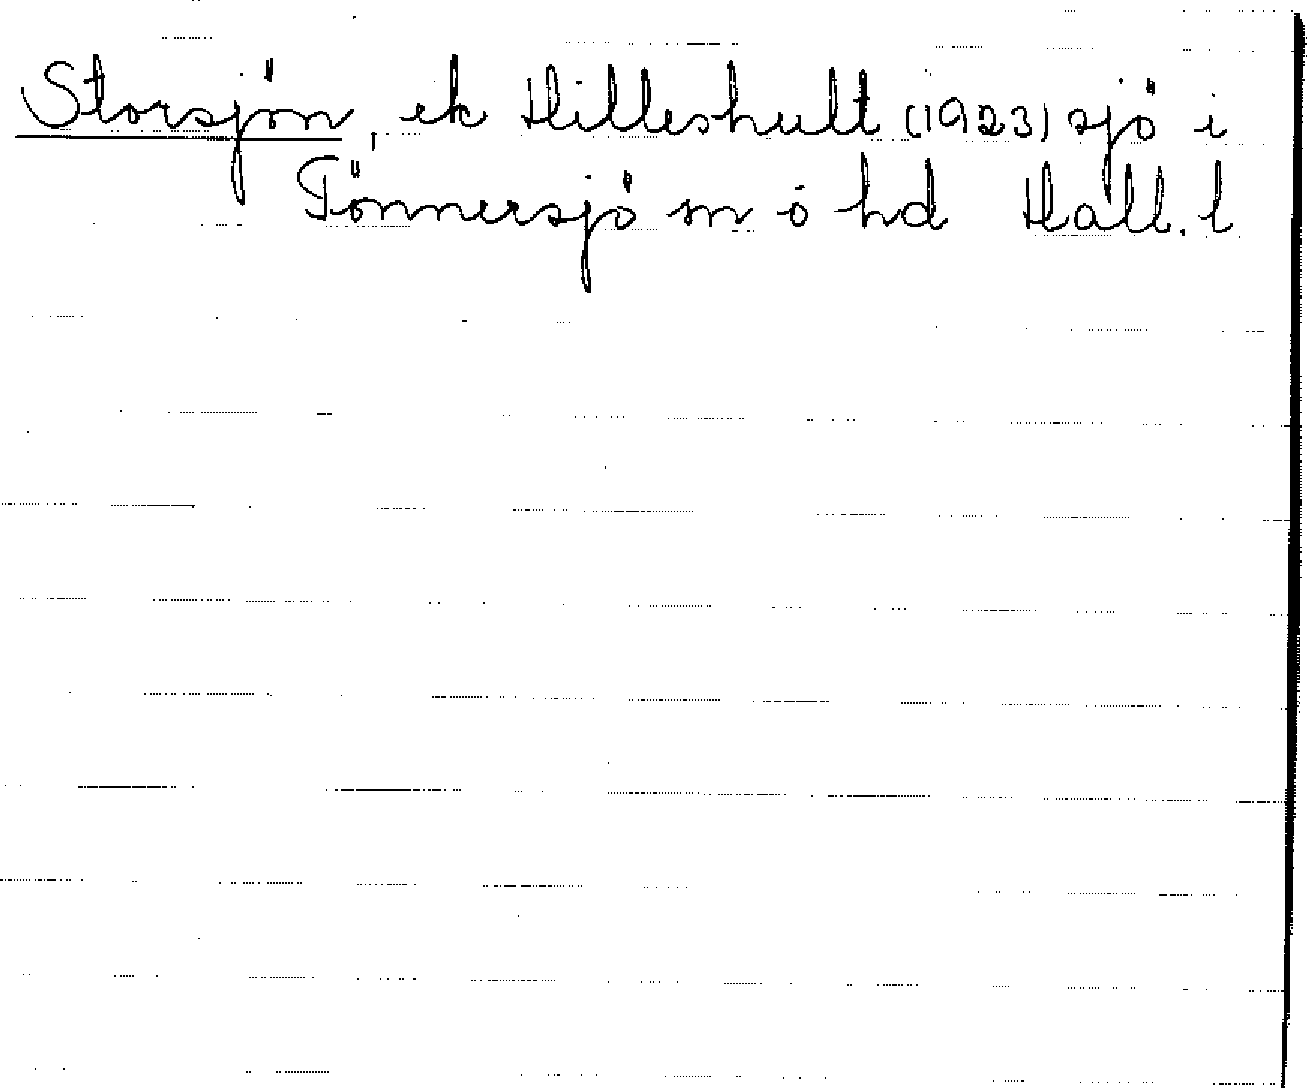 Storsjön, ek Hilleshult (1923) sjö i
Tönnersjö sn ö hd Hall. l